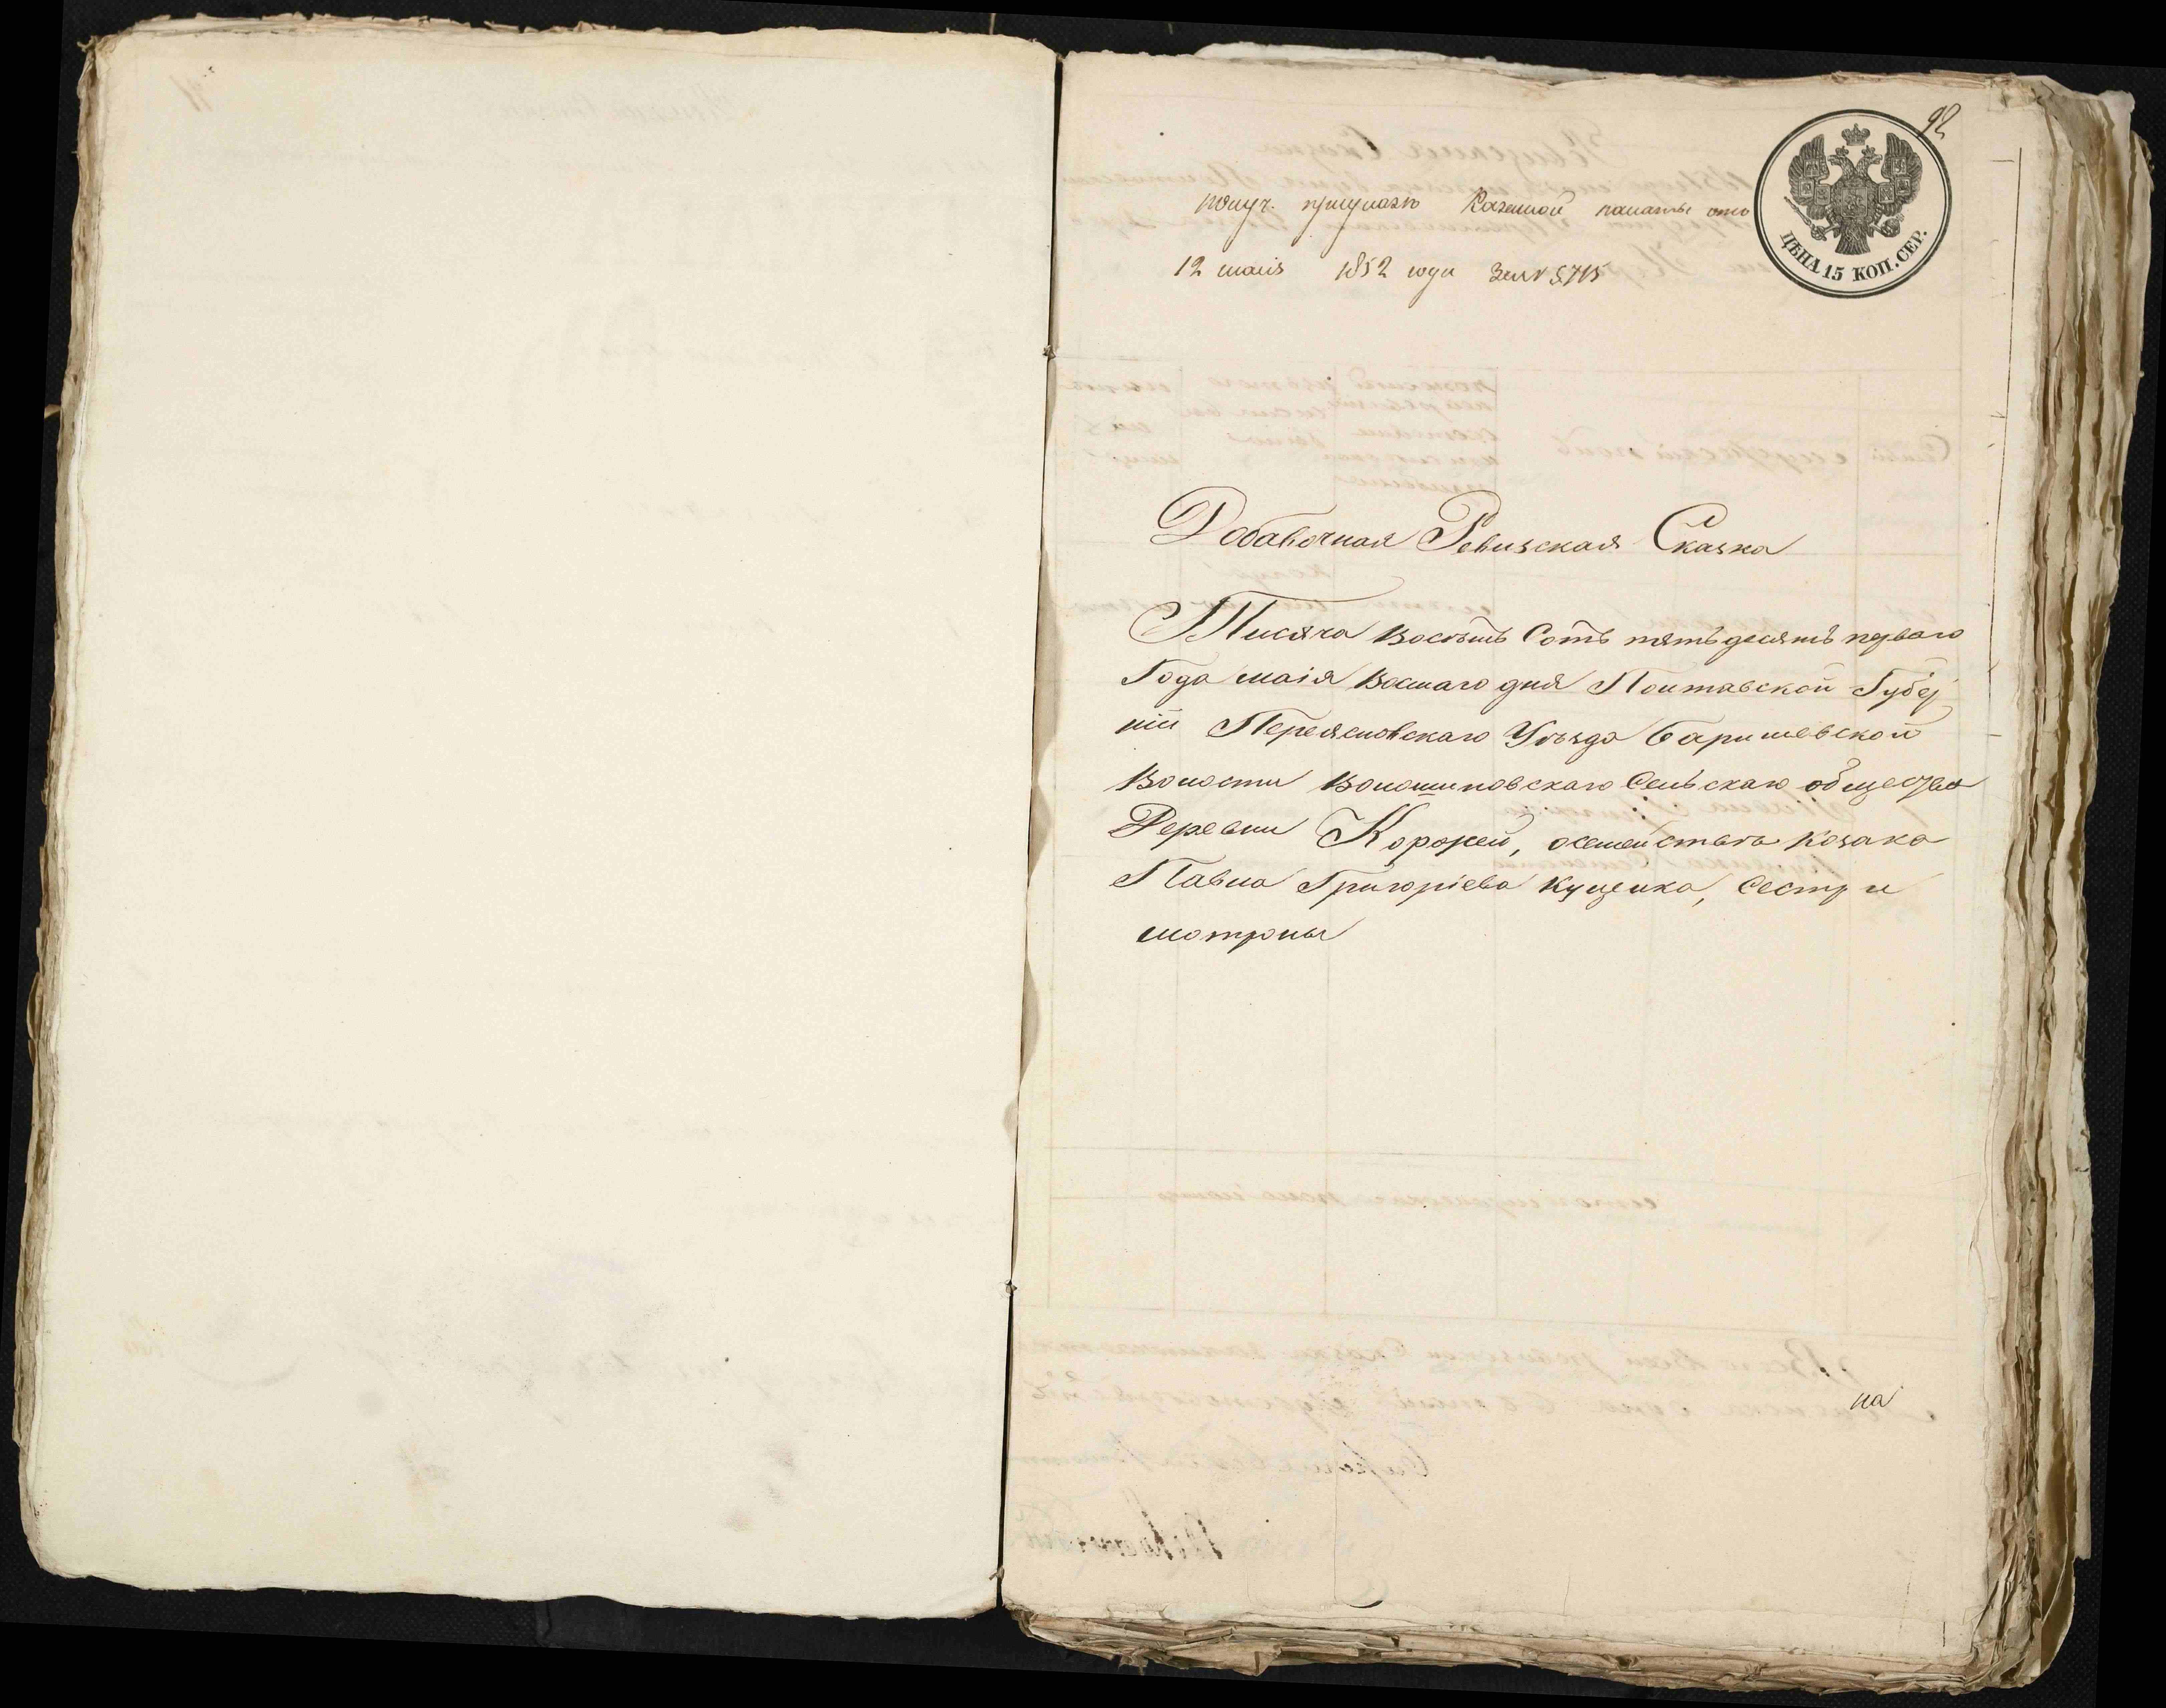 92
получ. приуказѣ Казенной палаты отъ
12 маія 1852 года за № 5715
ЦѢНА 15 КОП. СЕР.
Добавочная Ревизская Сказка
Тисяча восемь Сотъ пятьдесятъ перваго
Года маія восмаго дня Полтавской Губер
ніи Переясловскаго Уѣзда Баришевской
Волости Волошиновскаго Сельскаго общества
Деревни Коржей, осемействѣ козака
Павла Григоріева Куценка, Сестри
мотроны
на